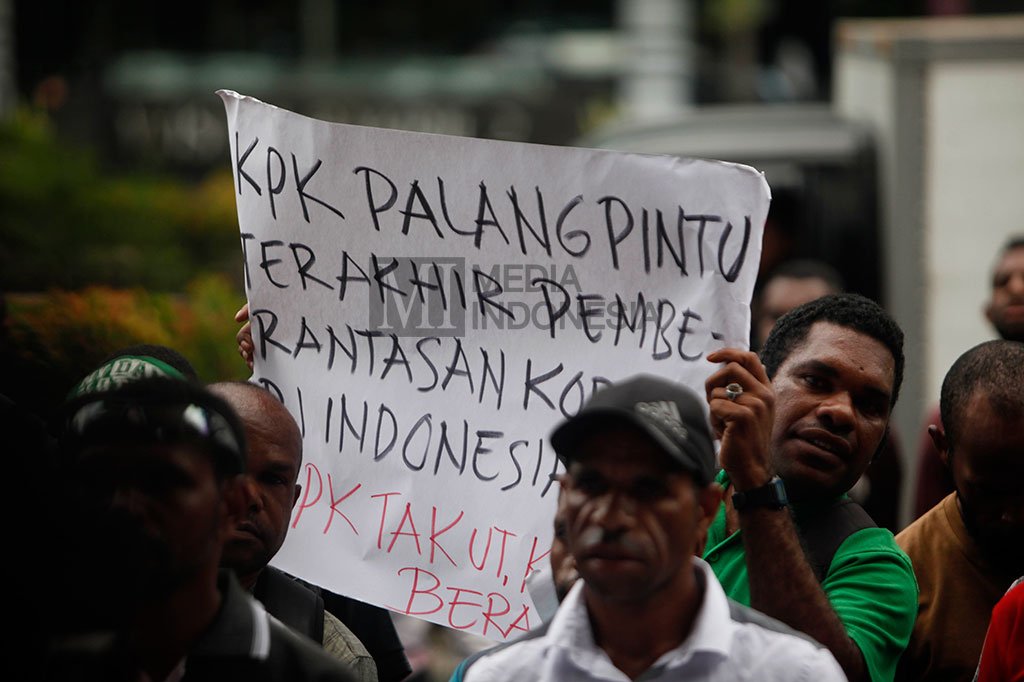 KPK PALANG PINTU
TERAKHIR PEMBE-
RANTASAN
DI INDONESIA
KPK TAKUT,
BERA
MI MEDIA
INDONESIA